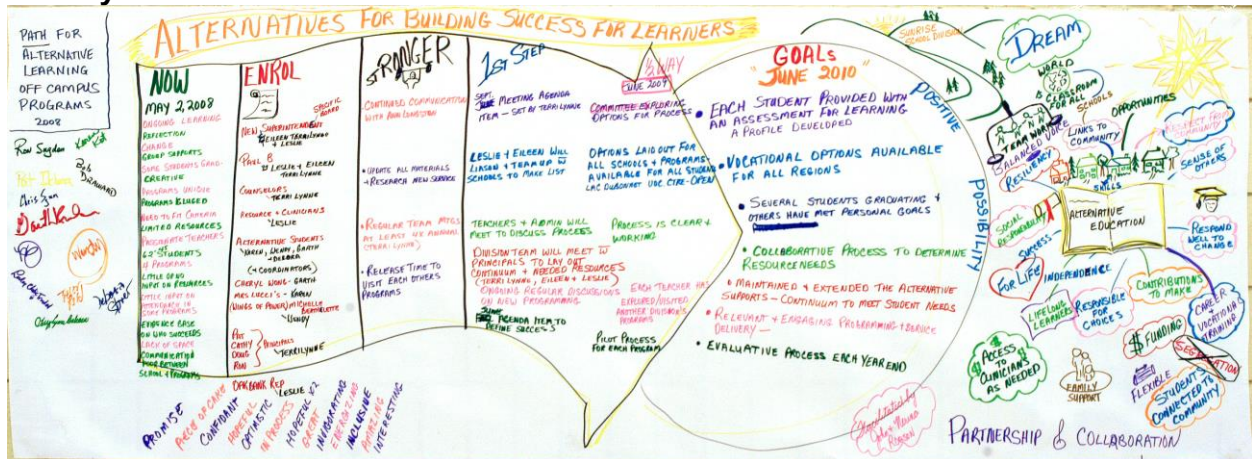 PATH FOR
ALTERNATIVE
LEARNING
OFF CAMPUS
PROGRAMS
2008
ALTERNATIVES FOR BUILDING SUCCESS FOR LEARNERS
NOW
MAY 2, 2008
ONGOING LEARNING
REFLECTION
CHANGE
GROUP SUPPORTS
SOME STUDENTS GRAD-
CREATIVE
PROGRAMS UNIQUE
NEED TO FIT CERTAIN
LIMITED RESOURCES
PASSIONATE TEACHERS
STUDENTS
4 PROGRAMS
LITTLE OR NO
INPUT ON RESOURCES
EVIDENCE BASE
ON WHO SUCCEEDS
LACK OF SPACE
COMMUNICATION
POOR BETWEEN
SCHOOL & PROGRAMS
ENROL
SPECIFIC
BOARD
NEW SUPERINTENDENT
EILEEN TERRILYNNE
+ LESLIE
PAUL B
LESLIE + EILEEN
TERRILYNNE
COUNSELORS
RESOURCE + CLINICIANS
LESLIE
ALTERNATIVE STUDENTS
KAREN, WENDY, GARTH
DEBORA
(+ COORDINATORS)
CHERYL WONG - GARTH
MRS LUCCI'S - KAREN
(WINGS OF POWER) MICHELLE
BERNADETTE
WENDY
PAT
CATHY
DOUG
RON
PRINCIPALS
TERRILYNNE
OAKBANK REP
LESLIE
STRONGER
CONTINUED COMMUNICATION
WITH ANN LONGSTON
• UPDATE ALL MATERIALS
+ RESEARCH NEW SERVICE
• REGULAR TEAM MTGS
AT LEAST 4X ANNUAL
(TERRILYNNE)
• RELEASE TIME TO
VISIT EACH OTHERS
PROGRAMS
1ST STEP
SEPT.
JUNE MEETING AGENDA
ITEM - SET TERRILYNNE
LESLIE + EILEEN WILL
LIASON + TEAM UP W
SCHOOLS TO MAKE LIST
TEACHERS + ADMIN WILL
MEET TO DISCUSS PROCESS
DIVISION TEAM WILL MEET W
PRINCIPALS TO LAY OUT
CONTINUUM + NEEDED RESOURCES
(TERRILYNNE, EILEEN + LESLIE)
ONGOING REGULAR DISCUSSIONS
ON NEW PROGRAMMING
AGENDA ITEM TO
DEFINE SUCCESS
½ WAY
JUNE 2009
COMMITTEE EXPLORING
OPTIONS FOR PROCESS
OPTIONS LAID OUT FOR
ALL SCHOOLS + PROGRAMS-
AVAILABLE FOR ALL STUDENTS
PROCESS IS CLEAR +
WORKING
EACH TEACHER HAS
EXPLORED/VISITED
ANOTHER DIVISION'S
PROGRAMS
PILOT PROCESS
FOR EACH PROGRAM
GOALS
"JUNE 2010"
• EACH STUDENT PROVIDED WITH
AN ASSESSMENT FOR LEARNING
A PROFILE DEVELOPED
• VOCATIONAL OPTIONS AVAILABLE
FOR ALL REGIONS
• SEVERAL STUDENTS GRADUATING &
OTHERS HAVE MET PERSONAL GOALS
• COLLABORATIVE PROCESS TO DETERMINE
RESOURCE NEEDS
• MAINTAINED & EXTENDED THE ALTERNATIVE
SUPPORTS - CONTINUUM TO MEET STUDENT NEEDS
• RELEVANT & ENGAGING PROGRAMMING & SERVICE
DELIVERY -
• EVALUATIVE PROCESS EACH YEAR END
POSITIVE
POSSIBILITY
SUNRISE
SCHOOL DIVISION
DREAM
WORLD
CLASSROOM
FOR ALL
TEAM WORK
BALANCED VOICE
RESILIENCY
LINKS TO
COMMUNITY
SCHOOLS
OPPORTUNITIES
RESPECT FROM
COMMUNITY
SENSE OF
OTHERS
SKILLS
ALTERNATIVE
EDUCATION
SOCIAL
RESPONSIBILITY
RESPOND
WELL TO
CHANGE
SUCCESS
FOR LIFE
INDEPENDENCE
LIFELONG
LEARNERS
RESPONSIBLE
FOR
CHOICES
CONTRIBUTIONS
TO MAKE
CAREER
+
VOCATIONAL
TRAINING
$ FUNDING
SEGREGATION
ACCESS
TO
CLINICIANS
AS NEEDED
FAMILY
SUPPORT
FLEXIBLE
STUDENTS
CONNECTED TO
COMMUNITY
PARTNERSHIP & COLLABORATION
PROMISE
PIECE OF CAKE
CONFIDANT
HOPEFUL
OPTIMISTIC
IN PROCESS
HOPEFUL X2
GREAT
INVIGORATING
ENERGIZING
INCLUSIVE
AMAZING
INTERESTING